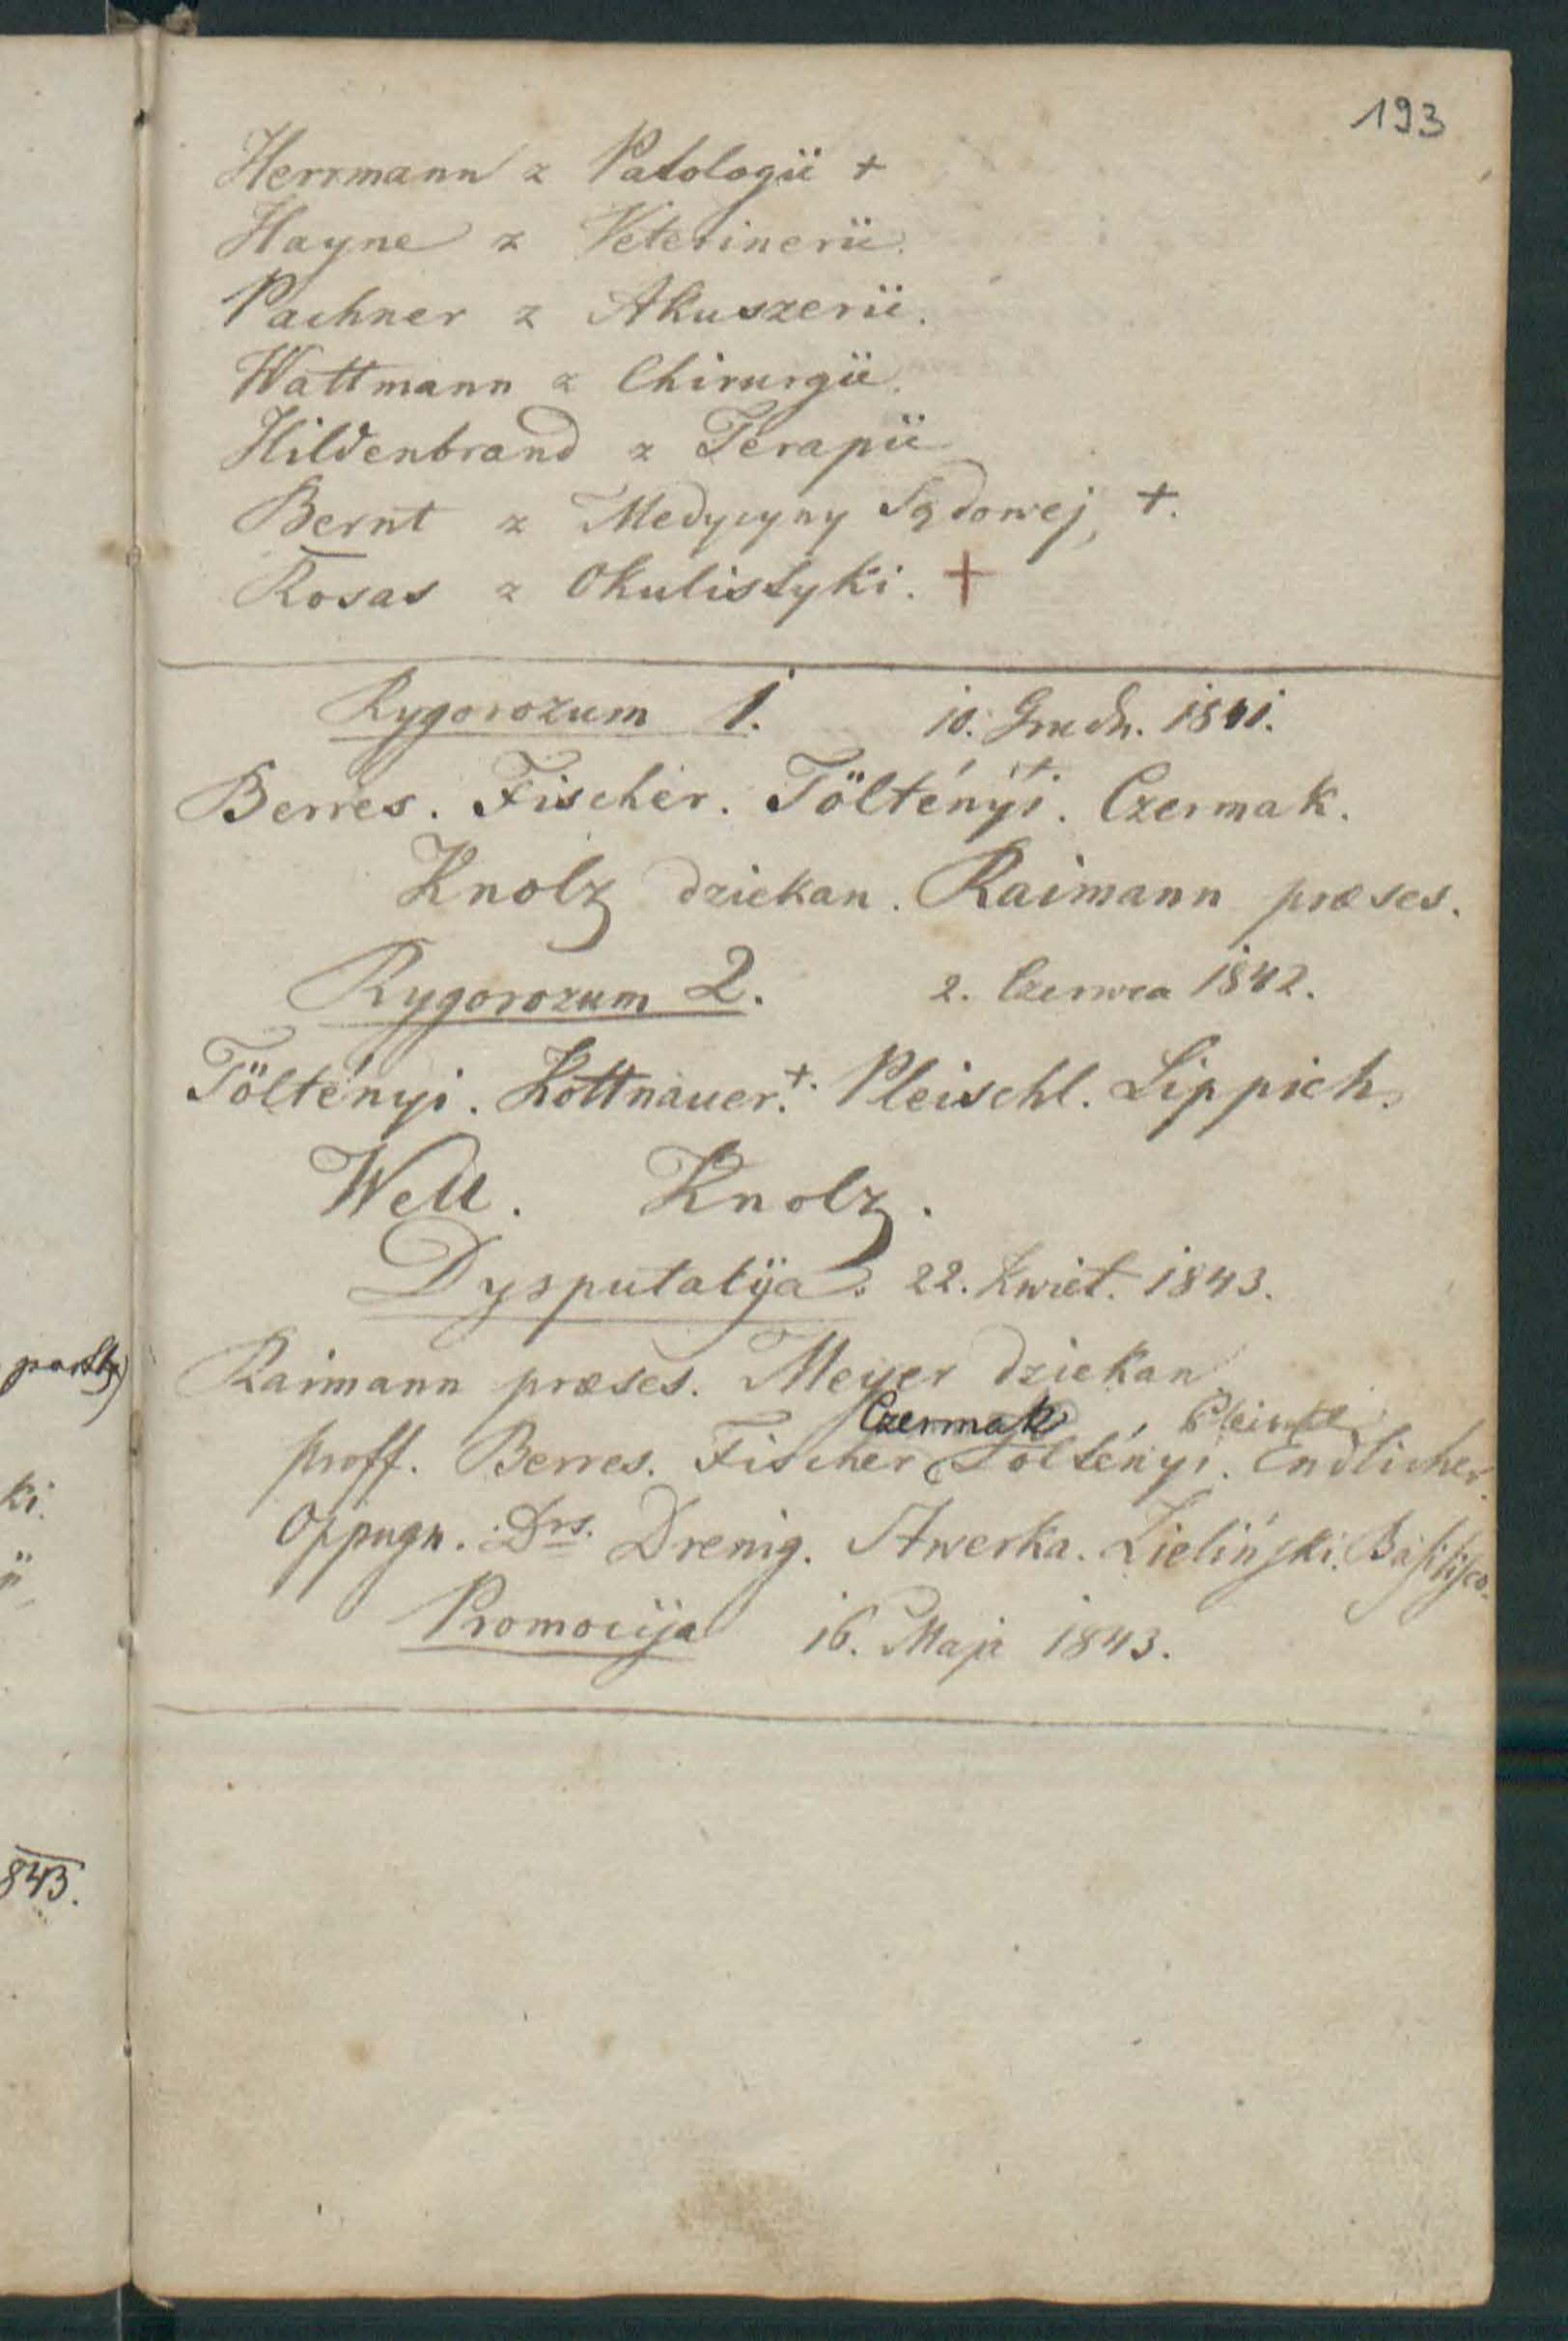 193
Herrmann z Patologii +
Hayne z Veterinerii.
Pachner z Akuszerii.
Wattmann z Chirurgii.
Hildenbrand z Terapii
Bernt z Medycyny Sądowej, +.
Rosas z Okulistyki. +
Rygorozum 1. 10. Grudn. 1841.
Berres. Fischer. Töltényi +. Czermak.
Knolz dziekan. Raimann præses.
Rygorozum 2. 2. Czerwca 1842.
Töltényi. Kottnauer. +. Pleischl. Lippich.
Well. Knolz.
Dysputacyja. 22. Kwiet. 1843.
Raimann præses. Meyer dziekan
Czermak Pleischl
proff. Berres. Fischer Töltényi. Endlicher.
Oppugn. Drs. Drenig. Stwerka. Zieliński.
Promocyja 16. Maja 1843.
ki.
843.